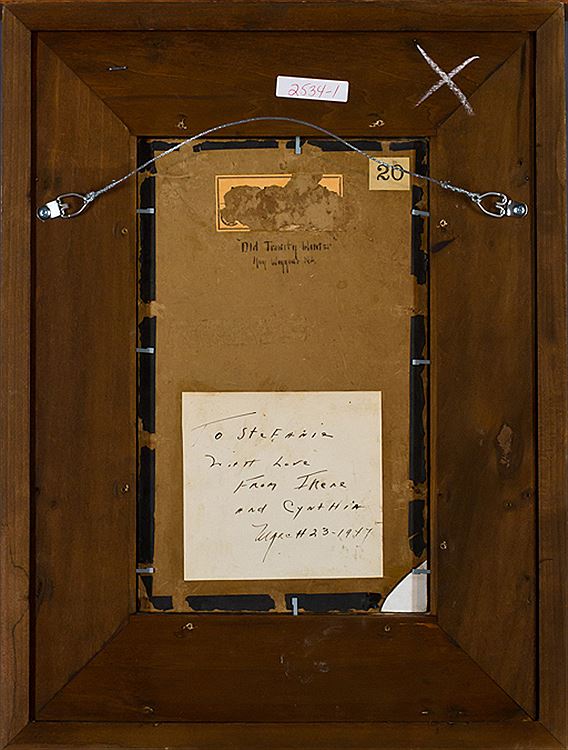 2534-1
20
"Old Trinity Winter"
Guy Wiggins NA
To Stefanie
With Love
From Irene
and Cynthia
March 23-1947